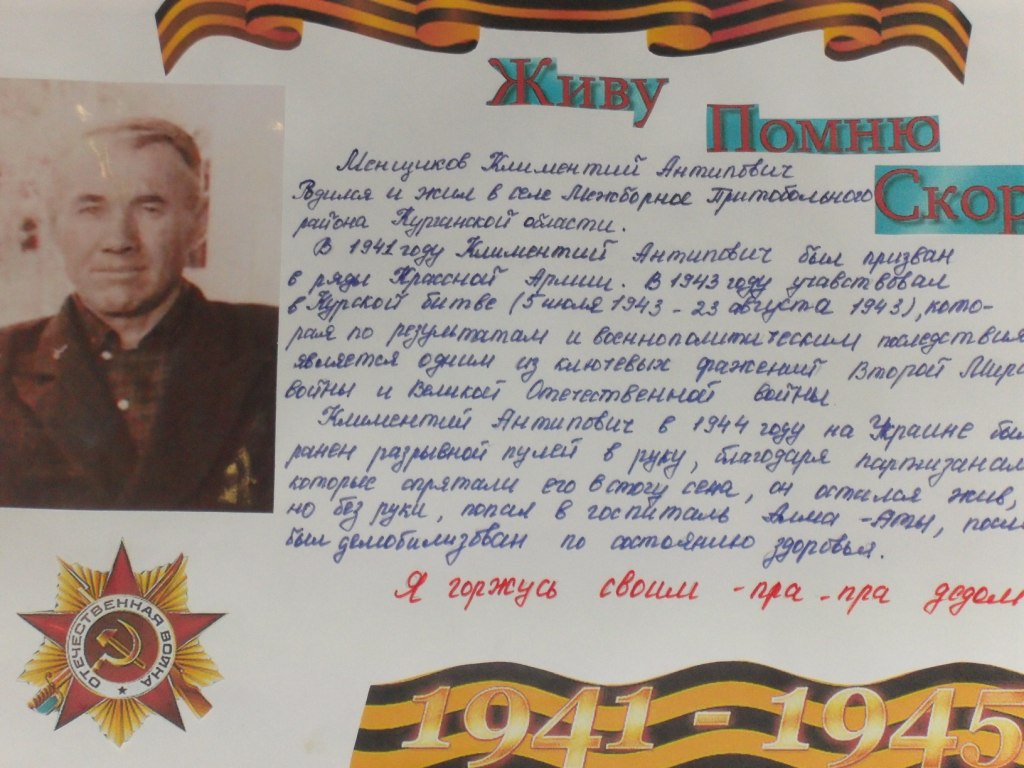 Живу
Помню
Скор
Менщиков Климентий Антипович
Родился и жил в селе Межборное Притобольного
района Курганской области.
В 1941 году Климентий Антипович был призван
в ряды Красной Армии. В 1943 году учавствовал
в Курской битве (5 июля 1943 - 23 августа 1943), кото-
рая по результатам и военнополитическим последствия
является одним из ключевых сражений Второй Миро
войны и Великой Отечественной войны.
Климентий Антипович в 1944 году на Украине был
ранен разрывной пулей в руку, благодаря партизанам
которые спрятали его в стогу сена, он остался жив,
но без руки, попал в госпиталь Алма-Аты, после
был демобилизован по состоянию здоровья.
Я горжусь своим - пра - пра дедом
ОТЕЧЕСТВЕННАЯ ВОЙНА
1941 - 1945